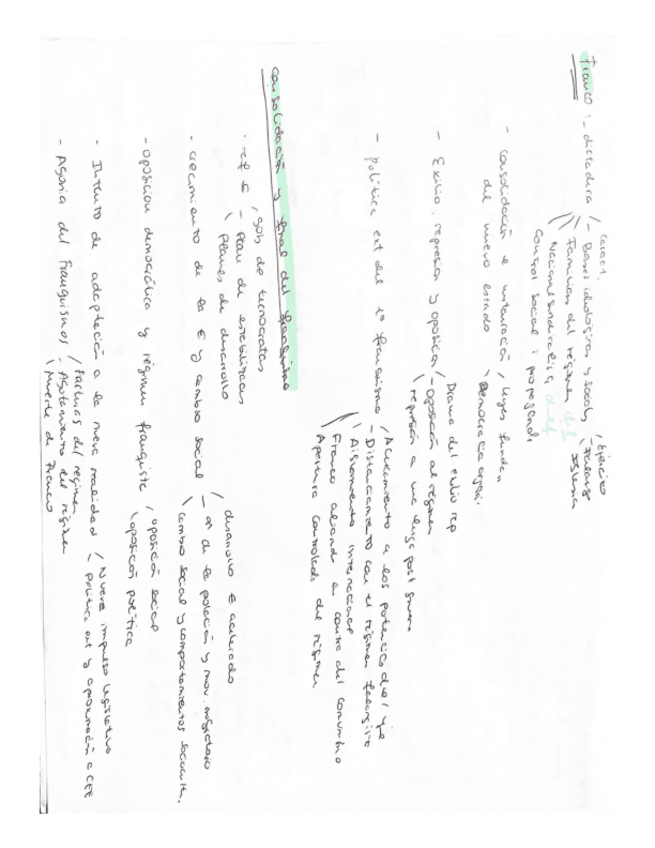 Franco :- dictadura / - Bases ideológicas y socials / Ejército
caract.
Familias del régimen
Falange
Iglesia
Nacionalsindicalista
Control social i propaganda
- Consolidación e instauración / leyes funda
del nuevo estado \ Democracia orgáni.
- Exilio, represión y oposición
Drama del exilio rep
- oposición al régimen
represión a una larga post guerra
- política ext del 1º franquismo / Acercamiento a las potencias del eje
- Distanciamiento con el régimen falangista
Aislamiento internacional
Franco aliando en contra del comunismo
Apertura controlada del régimen
Consolidación y final del franquismo
/ Gob de tecnócratas
- ref € - Plan de estabilización
\ Planes de desarrollo
- crecimiento de la € y cambio social
/ desarrollo € acelerado
- de la población y mov. migratorio
\ cambio social y comportamientos sociocult.
- oposición democrática y régimen franquista / oposición social
\ oposición política
- Intento de adaptación a la nueva realidad / Nuevo impulso legislativo
\ política ext y aproximación a CEE
- Agonía del franquismo / Fracturas del régimen
- Agotamiento del régimen
\ Muerte de Franco